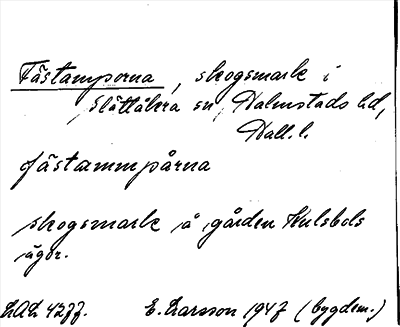 Fästamporna, skogsmark i
Slättåkra sn, Halmstads hd,
Hall. l.
fästammpårna
skogsmark å gården Kulsbols
ägor.
LAL 4277.   E. Larsson 1947 (bygdem.)